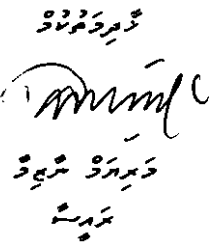 ޚާދިމަތުކުމް
މަރިޔަމް ނާޒިމާ
ރައީސާ